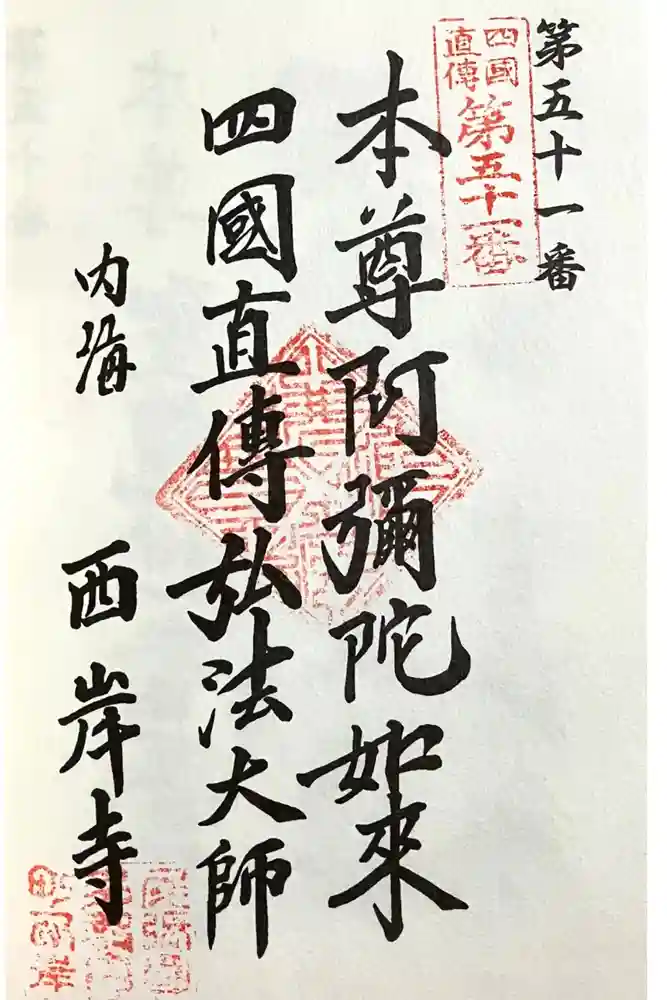 第五十一番
四國
直傳
第五十一番
本尊阿彌陀如來
四國直傳弘法大師
内海 西岸寺